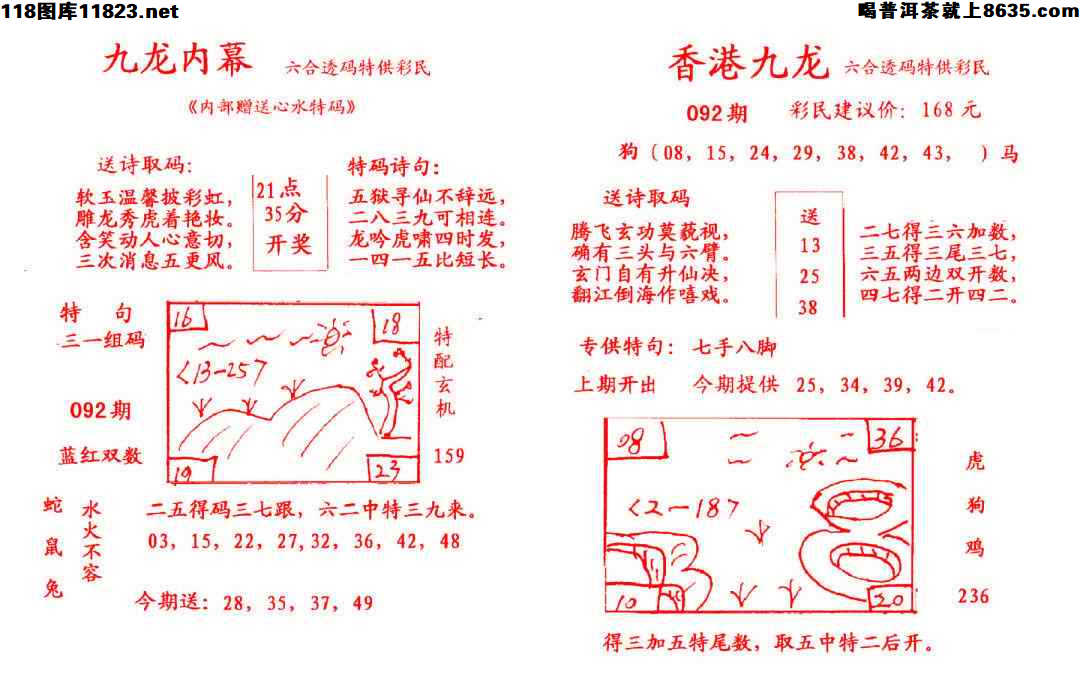 118图库11823.net
喝普洱茶就上8635.com
九龙内幕 六合透码特供彩民
《内部赠送心水特码》
送诗取码:
软玉温馨披彩虹,
雕龙秀虎着艳妆。
含笑动人心意切,
三次消息五更风。
21点
35分
开奖
特码诗句:
五狱寻仙不辞远,
二八三九可相连。
龙吟虎啸四时发,
一四一五比短长。
特 句
三一组码
092期
蓝红双数
16
18
<13-25>
19
23
特配玄机
159
蛇
鼠
兔
水火不容
二五得码三七跟, 六二中特三九来。
03, 15, 22, 27,32, 36, 42, 48
今期送: 28, 35, 37, 49
香港九龙 六合透码特供彩民
092期 彩民建议价: 168元
狗(08, 15, 24, 29, 38, 42, 43, )马
送诗取码
腾飞玄功莫藐视,
确有三头与六臂。
玄门自有升仙决,
翻江倒海作嘻戏。
送
13
25
38
二七得三六加数,
三五得三尾三七,
六五两边双开数,
四七得二开四二。
专供特句: 七手八脚
上期开出 今期提供 25, 34, 39, 42。
08
36
<2-18>
10
20
虎
狗
鸡
236
得三加五特尾数, 取五中特二后开。